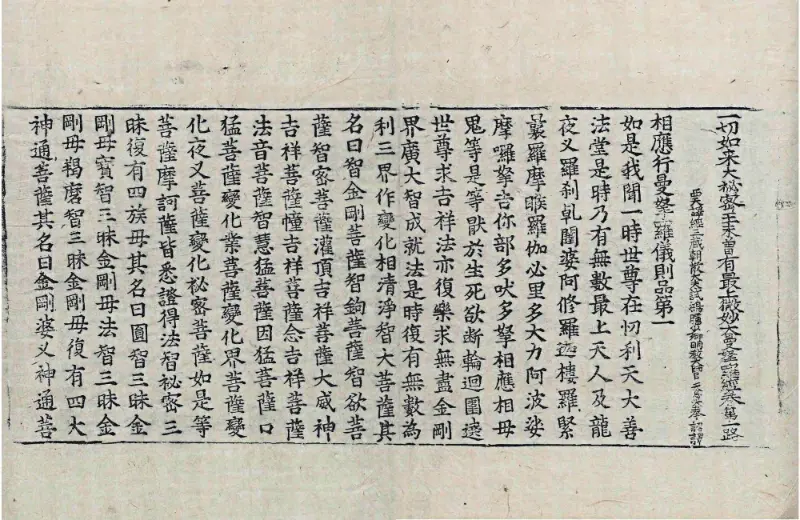 一切如来大秘密王未曾有最上微妙大曼拏羅經卷第一路
西天譯經三藏朝散大夫試鴻臚少卿明教大師臣天息災奉詔譯
相應行曼拏羅儀則品第一
如是我聞一時世尊在忉利天大善
法堂是時乃有無數最上天人及龍
夜叉羅刹乹闥婆阿修羅迦樓羅緊
曩羅摩睺羅伽必里多大力阿波娑
摩囉拏吉你部多吠多拏相應相毋
鬼等是等猒於生死欲断輪迴圍遶
世尊求吉祥法亦復樂求無盡金剛
界廣大智成就法是時復有無數為
利三界作變化相清淨智大菩薩其
名曰智金剛菩薩智鉤菩薩智欲菩
薩智密菩薩灌頂吉祥菩薩大威神
吉祥菩薩幢吉祥菩薩念吉祥菩薩
法音菩薩智慧猛菩薩因猛菩薩口
猛菩薩變化業菩薩變化界菩薩變
化夜叉菩薩變化秘密菩薩如是等
菩薩摩訶薩皆悉證得法智祕密三
昧復有四族毋其名曰圓智三昧金
剛毋寳智三昧金剛毋法智三昧金
剛毋羯磨智三昧金剛毋復有四大
神通菩薩其名曰金剛婆叉神通菩